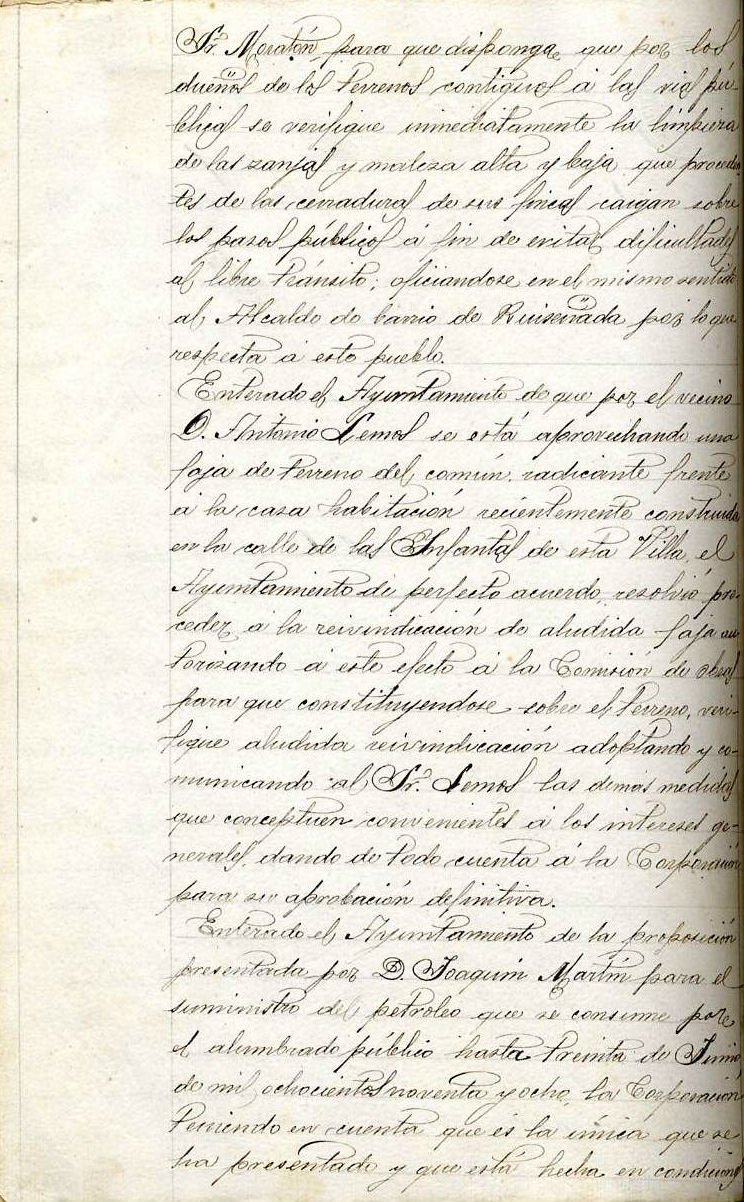 Sr. Moratón, para que disponga que por los
dueños de los terrenos contiguos á las vias pú-
blicas se verifique inmediatamente la limpieza
de las zanjas y maleza alta y baja que proceden-
tes de las cerraduras de sus fincas caigan sobre
los pasos públicos á fin de evitar dificultades
al libre tránsito; oficiandose en el mismo sentido
al Alcalde de barrio de Ruiseñada por lo que
respecta á este pueblo.
Enterado el Ayuntamiento de que por el vecino
D. Antonio Lemos se está aprovechando una
faja de terreno del común radicante frente
á la casa habitación recientemente construida
en la calle de las Infantas de esta Villa, el
Ayuntamiento de perfecto acuerdo, resolvió pro-
ceder á la reivindicación de aludida faja au
torizando á este efecto á la Comisión de obras
para que constituyendose sobre el terreno, veri-
fique aludida reivindicación adoptando y co-
municando al Sr. Lemos las demás medidas
que conceptuen convenientes á los intereses ge-
nerales, dando de todo cuenta á la Corporación
para su aprobación definitiva.
Enterado el Ayuntamiento de la proposición
presentada por D. Joaquin Martín para el
suministro del petroleo que se consume por
el alumbrado público hasta treinta de Junio
de mil ochocientos noventa y ocho, la Corporación
teniendo en cuenta que és la única que se
ha presentado y que está hecha en condiciones